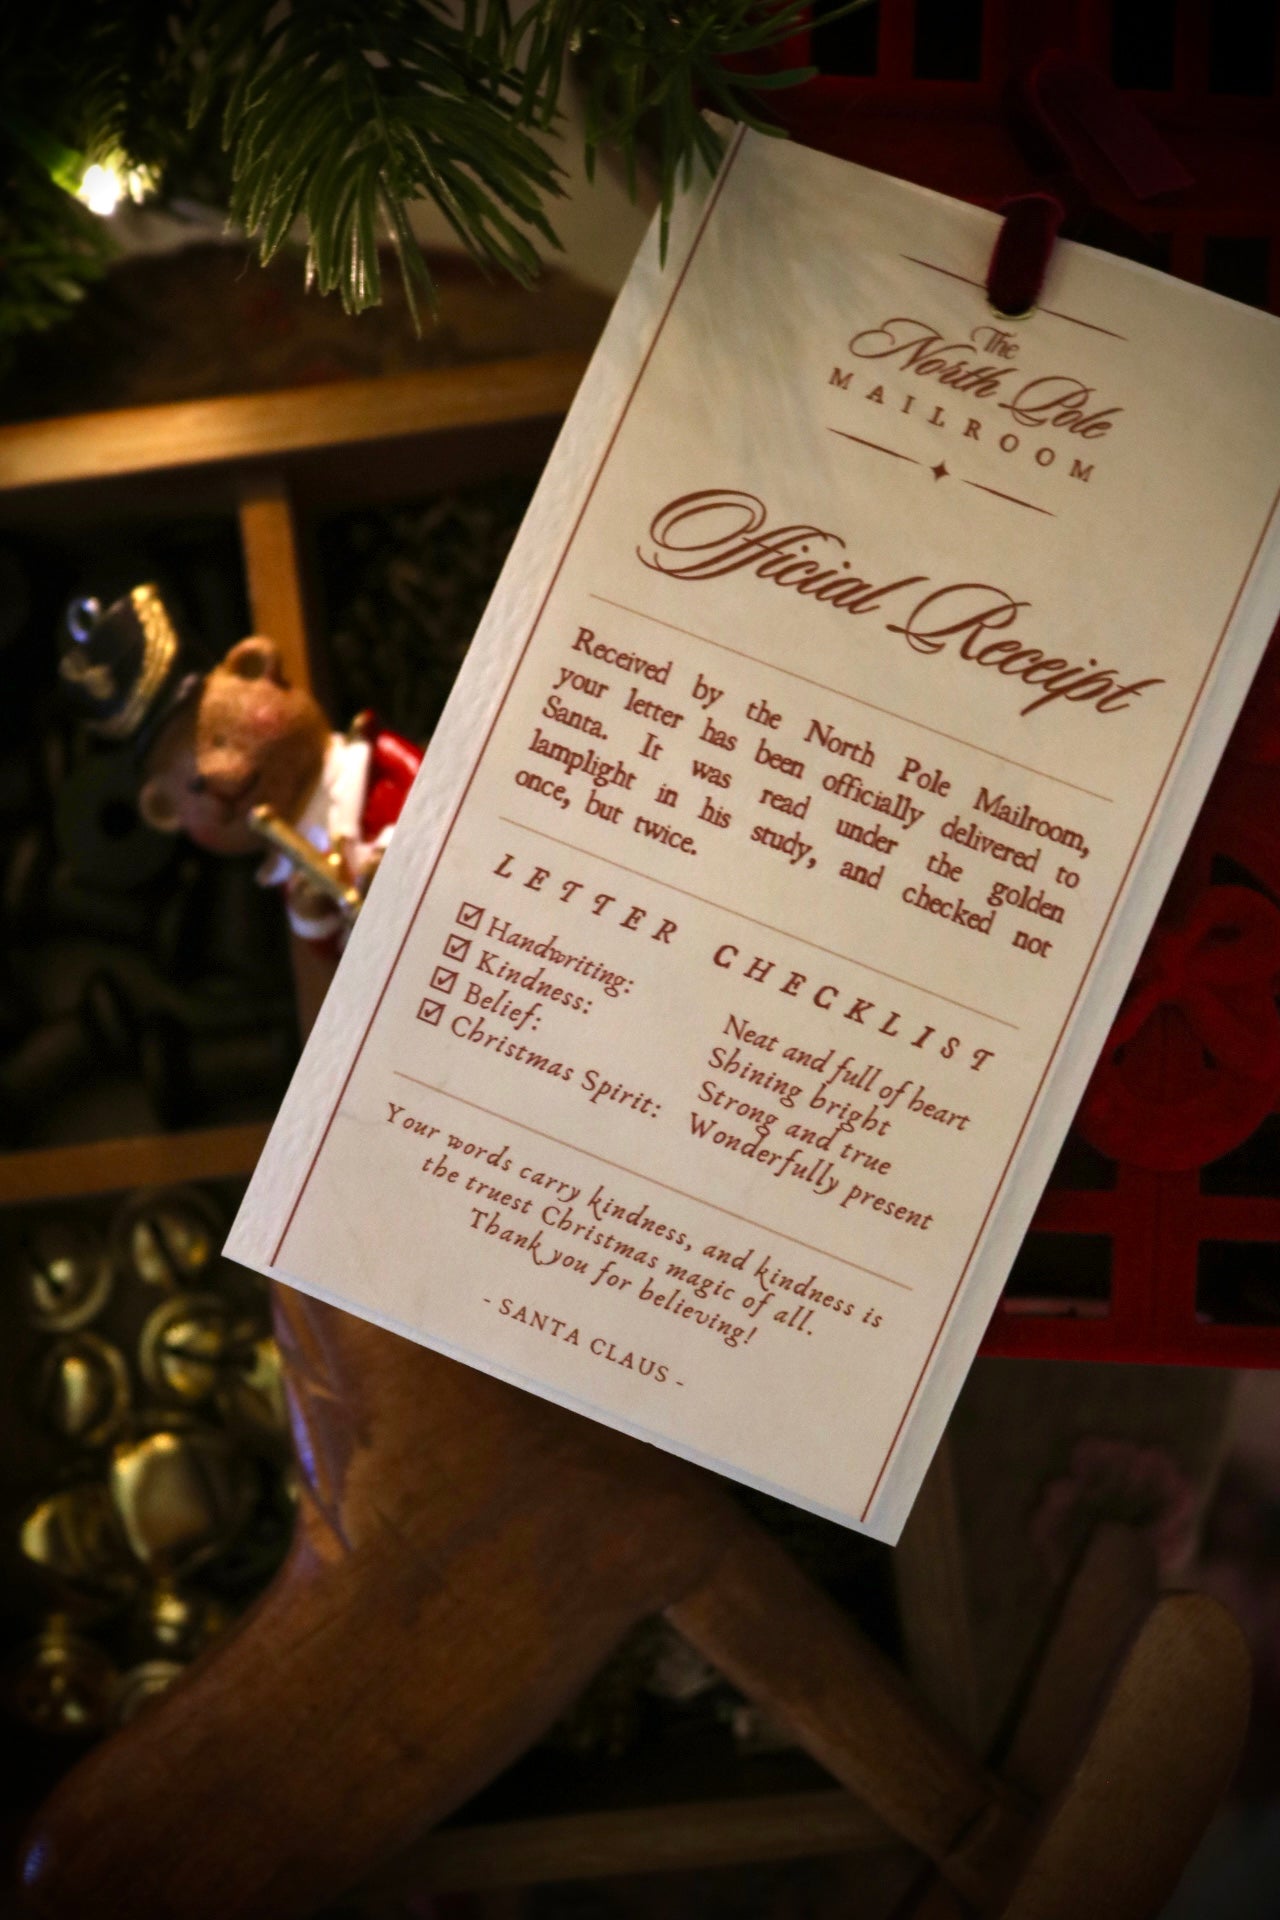 The
North Pole
MAILROOM
Official Receipt
Received by the North Pole Mailroom,
your letter has been officially delivered to
Santa. It was read under the golden
lamplight in his study, and checked not
once, but twice.
LETTER CHECKLIST
☑ Handwriting: Neat and full of heart
☑ Kindness: Shining bright
☑ Belief: Strong and true
☑ Christmas Spirit: Wonderfully present
Your words carry kindness, and kindness is
the truest Christmas magic of all.
Thank you for believing!
- SANTA CLAUS -